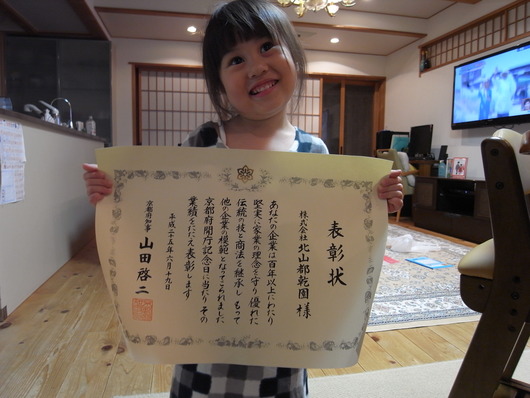 表彰状
株式会社 北山都乾園 様
あなたの企業は百年以上にわたり
堅実に家業の理念を守り優れた
伝統の技と商法を継承しもって
他の企業の模範となってこられました
京都府開庁記念日に当たりその
業績をたたえ表彰します
平成二十五年六月十九日
京都府知事 山田啓二